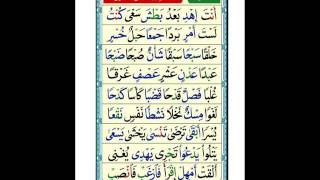 اَنْتَ اِهْدِ بَعْدُ بَطْشَ سَعْیَ كُنْتُ
لَسْتَ اَمْرِ بَرْدًا جَمْعًا حَبْلُ خُسْرٍ
خَلْقًا سَبْحًا سَبْقًا شَاْنٌ صُبْحًا ضَبْحًا
عَبْدًا عَدْنٍ عَشْرٍ عَصْفٍ غَرْقًا
غُلْبًا فَصْلٌ قَدْحًا قَضْبًا كَاْسًا كَدْحًا
لَغْوًا مِسْكٌ نَخْلًا نَشْطًا نَفْسٍ نَقْعًا
يُسْرًا اَلْقٰى تَرْضٰى تَنْسٰى يَخْشٰى يَسْعٰى
يَتْلُوْا يَدْعُوْا تَجْرِيْ يَهْدِيْ يُغْنِيْ
اَلْقَتْ اَمْهِلْ اِقْرَاْ فَارْغَبْ فَانْصَبْ